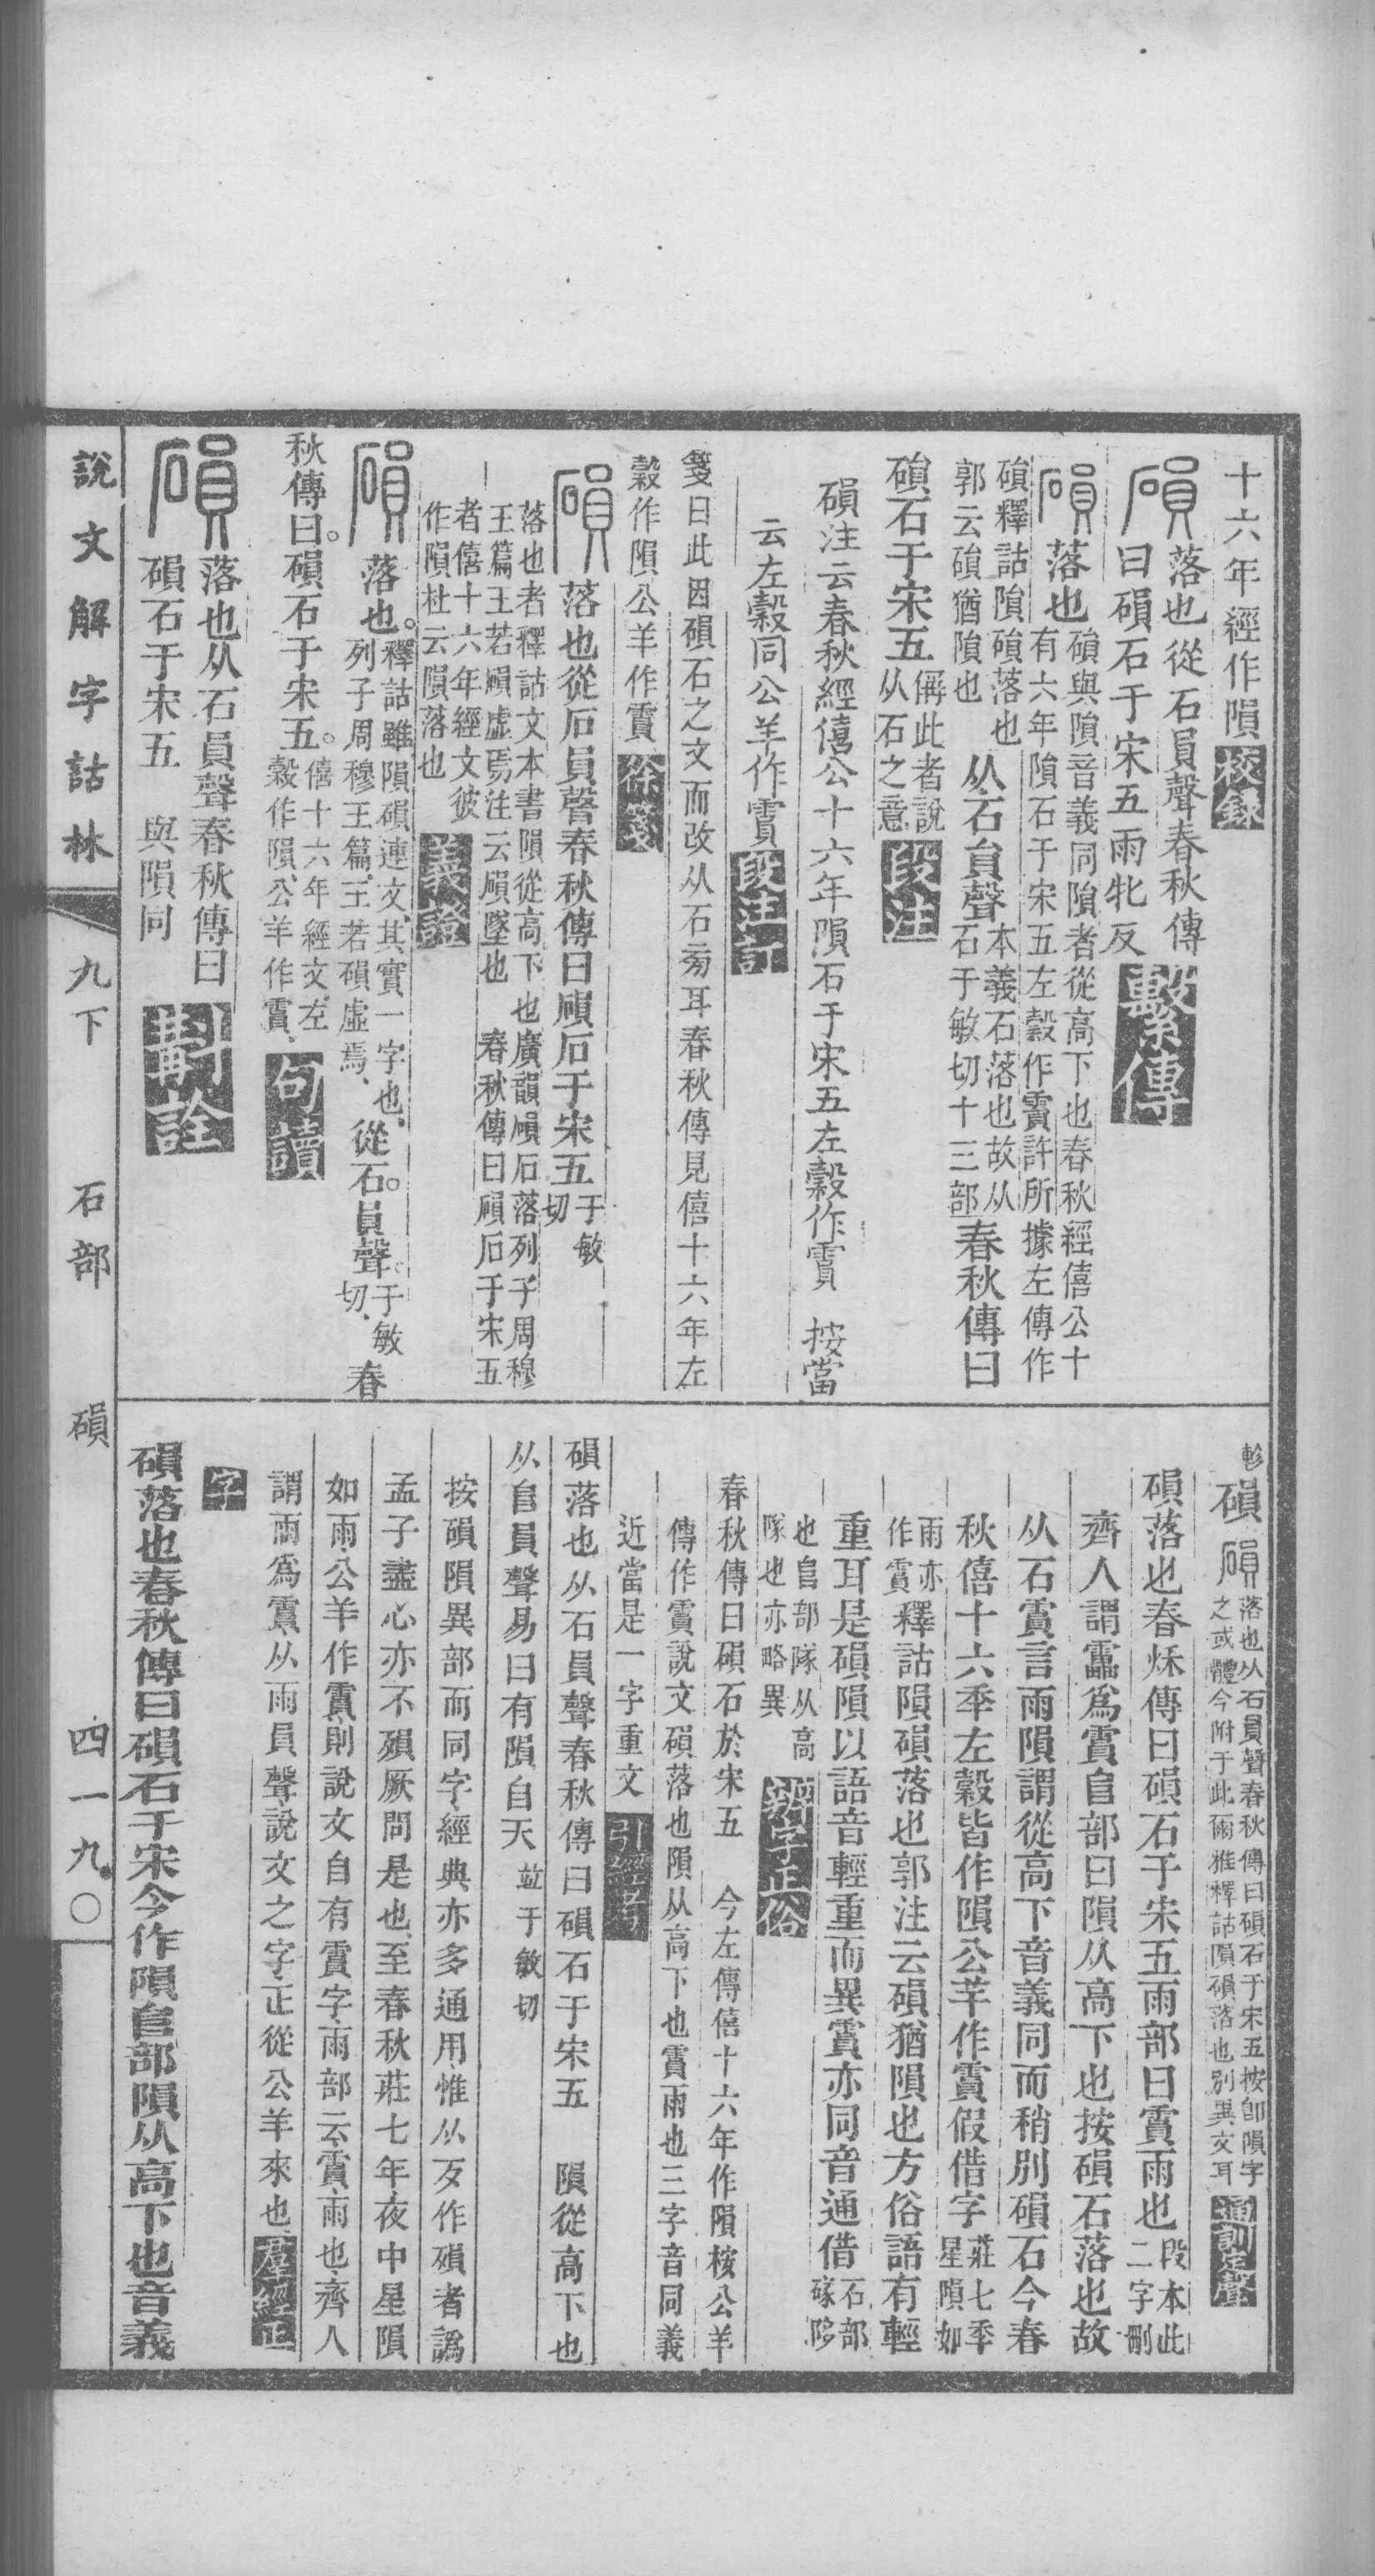 十六年經作隕校錄
磒落也從石員聲春秋傳
曰磒石于宋五雨牝反繫傳
磒落也磒與隕音義同隕者從高下也春秋經僖公十
有六年隕石于宋五左穀作霣許所據左傳作
磒釋詁隕磒落也
郭云磒猶隕也从石員聲本義石落也故从
石于敏切十三部春秋傳曰
磒石于宋五偁此者說
从石之意段注
磒注云春秋經僖公十六年隕石于宋五左穀作霣 按當
云左穀同公羊作霣段注訂
箋曰此因磒石之文而改从石旁耳春秋傳見僖十六年左
穀作隕公羊作霣徐箋
磒落也從石員聲春秋傳曰磒石于宋五于敏
切
落也者釋詁文本書隕從高下也廣韻磒石落列子周穆
王篇王若磒虛焉注云磒墜也 春秋傳曰磒石于宋五
者僖十六年經文彼
作隕杜云隕落也義證
磒落也。釋詁雖隕磒連文、其實一字也、
列子周穆王篇、王若磒虛焉、從石。員聲。于敏
切、春
秋傳曰。磒石于宋五。僖十六年經文、左
穀作隕、公羊作霣、句讀
磒落也从石員聲春秋傳曰
磒石于宋五 與隕同斠詮
軫磒磒落也从石員聲春秋傳曰磒石于宋五按卽隕字
之或體今附于此爾雅釋詁隕磒落也別異文耳通訓定聲
磒落也春秌傳曰磒石于宋五雨部曰霣雨也段本此
二字刪
齊人謂靁爲霣𨸏部曰隕从高下也按磒石落也故
从石霣言雨隕謂從高下音義同而稍別磒石今春
秋僖十六季左穀皆作隕公羊作霣假借字莊七季
星隕如
雨亦
作霣釋詁隕磒落也郭注云磒猶隕也方俗語有輕
重耳是磒隕以語音輕重而異霣亦同音通借石部
磒隊
也𨸏部隊从高
隊也亦略異正俗
春秋傳曰磒石於宋五 今左傳僖十六年作隕桉公羊
傳作霣說文磒落也隕从高下也霣雨也三字音同義
近當是一字重文引經考
磒落也从石員聲春秋傳曰磒石于宋五 隕從高下也
从𨸏員聲易曰有隕自天 並于敏切
按磒隕異部而同字經典亦多通用惟从歹作殞者譌
孟子盡心亦不殞厥問是也至春秋莊七年夜中星隕
如雨公羊作霣則說文自有霣字雨部云霣雨也齊人
謂雨爲霣从雨員聲說文之字正從公羊來也群經正
字
磒落也春秋傳曰磒石于宋今作隕𨸏部隕从高下也音義
說文解字詁林 九下 石部 磒 四一九〇